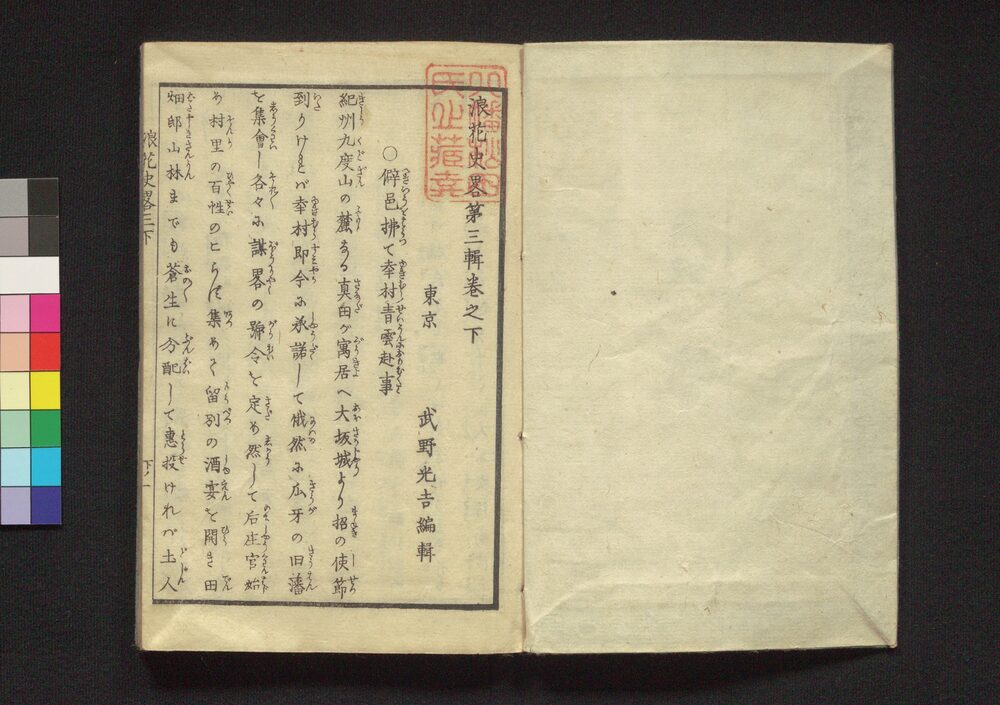 浪花史畧第三輯卷之下
東京 武野光吉編輯
○僻邑拂て幸村青雲赴事
紀州九度山の麓なる真田が寓居へ大坂城より招の使節
到りけれバ幸村即令に承諾して俄然に瓜牙の旧藩
を集會し各々に謀畧の號令を定め然して后庄官始
め村里の百性のこらず集めて留別の酒宴を開き田
畑邸山林までも蒼生に分配して惠投けれバ土人
浪花史畧三下
下ノ一